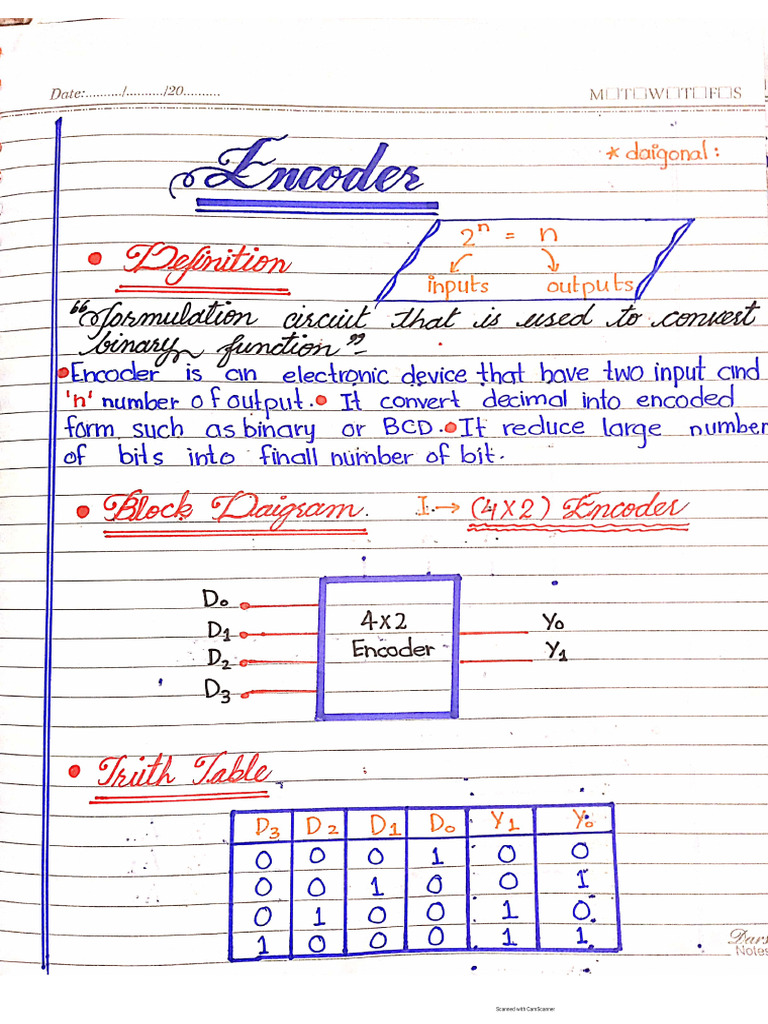 Date:........../........../20..........
M□T□W□T□F□S
Encoder
* daigonal :
2ⁿ = n
inputs outputs
• Definition
"formulation circuit that is used to convert
binary function"-
• Encoder is an electronic device that have two input and
'n' number of output. • It convert decimal into encoded
form such as binary or BCD. • It reduce large number
of bits into finall number of bit.
• Block Daigram. I → (4×2) Encoder
D₀
D₁
D₂
D₃
4×2
Encoder
Y₀
Y₁
• Truth Table
D₃ D₂ D₁ D₀ Y₁ Y₀
0 0 0 1 0 0
0 0 1 0 0 1
0 1 0 0 1 0
1 0 0 0 1 1
Notes
Scanned with CamScanner